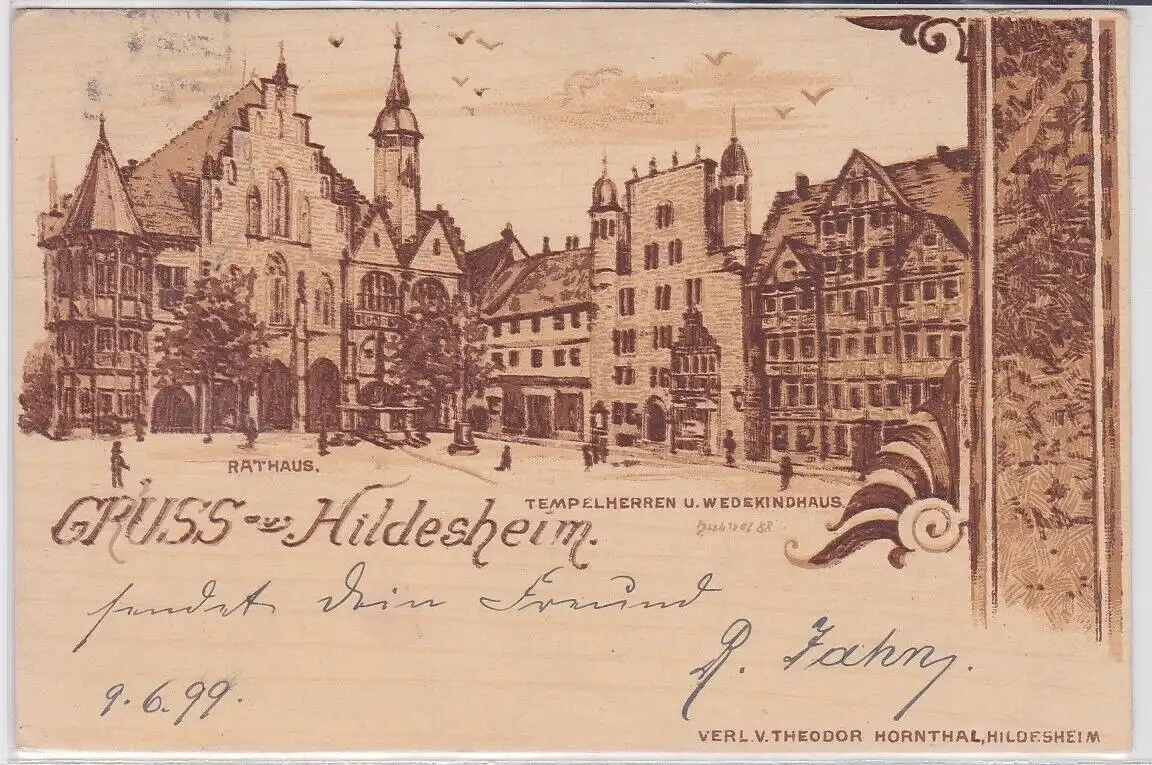 RATHAUS.
TEMPELHERREN U. WEDEKINDHAUS.
GRUSS aus Hildesheim.
sendet Dein Freund
R. Jahn.
9.6.99.
VERL.V.THEODOR HORNTHAL, HILDESHEIM